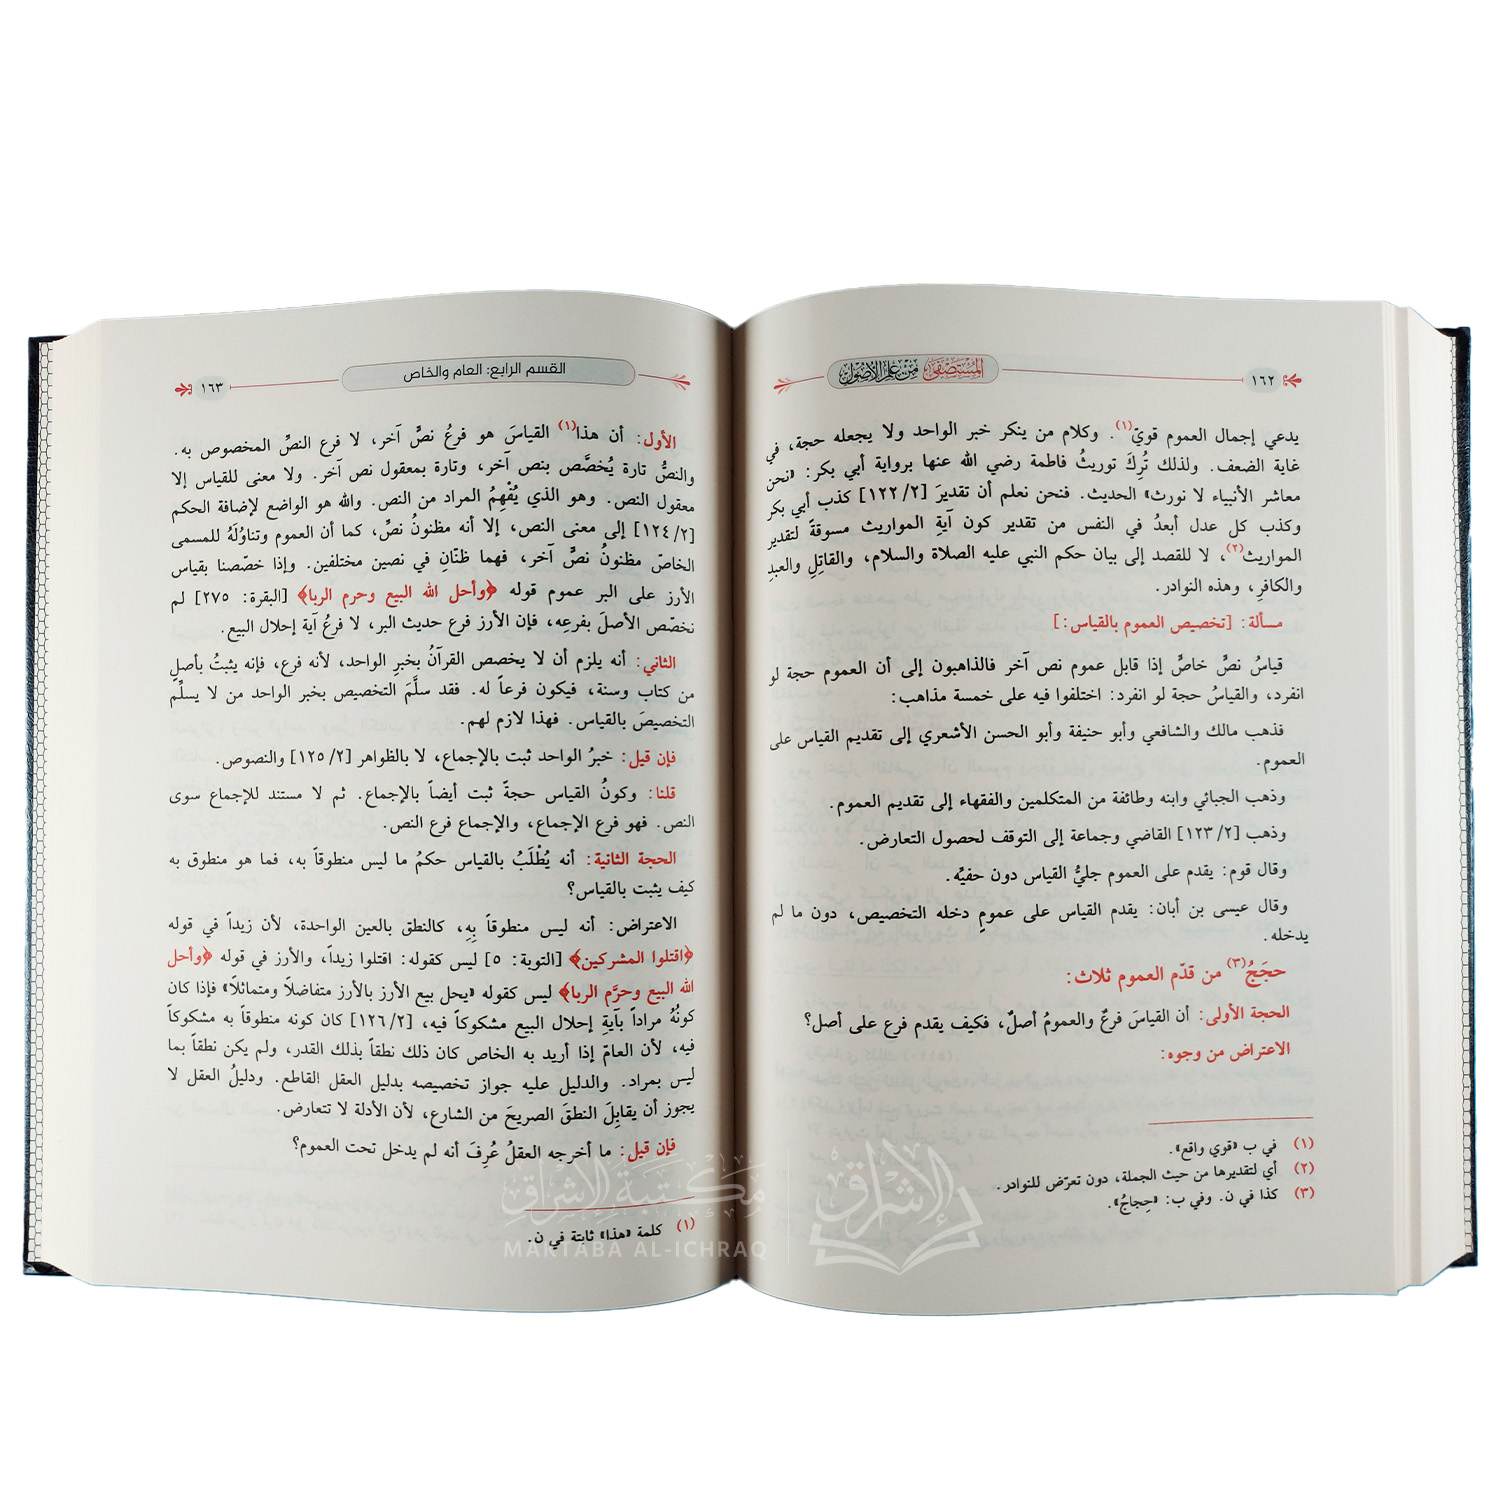 ١٦٢
المُسْتَصْفَى مِنْ عِلْمِ الأُصُولِ
يدعي إجمال العموم قويّ(١). وكلام من ينكر خبر الواحد ولا يجعله حجة، في
غاية الضعف. ولذلك تُرِكَ توريثُ فاطمة رضي الله عنها برواية أبي بكر: «نحن
معاشر الأنبياء لا نورث» الحديث. فنحن نعلم أن تقديرَ [٢/ ١٢٢] كذب أبي بكر
وكذب كل عدل أبعدُ في النفس من تقدير كون آيةِ المواريث مسوقةً لتقدير
المواريث(٢)، لا للقصد إلى بيان حكم النبي عليه الصلاة والسلام، والقاتِلِ والعبدِ
والكافرِ، وهذه النوادر.
مسألة: [تخصيص العموم بالقياس:]
قياسُ نصٍّ خاصٍّ إذا قابل عموم نص آخر فالذاهبون إلى أن العموم حجة لو
انفرد، والقياسُ حجة لو انفرد: اختلفوا فيه على خمسة مذاهب:
فذهب مالك والشافعي وأبو حنيفة وأبو الحسن الأشعري إلى تقديم القياس على
العموم.
وذهب الجبائي وابنه وطائفة من المتكلمين والفقهاء إلى تقديم العموم.
وذهب [٢/ ١٢٣] القاضي وجماعة إلى التوقف لحصول التعارض.
وقال قوم: يقدم على العموم جليُّ القياس دون خفيِّه.
وقال عيسى بن أبان: يقدم القياس على عمومٍ دخله التخصيص، دون ما لم
يدخله.
حجَجُ(٣) من قدّم العموم ثلاث:
الحجة الأولى: أن القياسَ فرعٌ والعمومُ أصلٌ، فكيف يقدم فرع على أصل؟
الاعتراض من وجوه:
(١) في ب «قوي واقع».
(٢) أي لتقديرها من حيث الجملة، دون تعرّض للنوادر.
(٣) كذا في ن. وفي ب: «حِجاجُ».
القسم الرابع: العام والخاص
١٦٣
الأول: أن هذا(١) القياسَ هو فرعُ نصٍّ آخر، لا فرع النصِّ المخصوص به.
والنصُّ تارة يُخصَّص بنص آخر، وتارة بمعقول نص آخر. ولا معنى للقياس إلا
معقول النص. وهو الذي يُفْهِمُ المراد من النص. والله هو الواضع لإضافة الحكم
[٢/ ١٢٤] إلى معنى النص، إلا أنه مظنونُ نصٍّ، كما أن العموم وتناوُلَهُ للمسمى
الخاصّ مظنونُ نصٍّ آخر، فهما ظنّان في نصين مختلفين. وإذا خصّصنا بقياس
الأرز على البر عموم قوله ﴿وأحل الله البيع وحرم الربا﴾ [البقرة: ٢٧٥] لم
نخصّص الأصلَ بفرعِه، فإن الأرز فرع حديث البر، لا فرعُ آية إحلال البيع.
الثاني: أنه يلزم أن لا يخصص القرآنُ بخبرِ الواحد، لأنه فرع، فإنه يثبتُ بأصلٍ
من كتاب وسنة، فيكون فرعاً له. فقد سلَّمَ التخصيص بخبر الواحد من لا يسلِّم
التخصيصَ بالقياس. فهذا لازم لهم.
فإن قيل: خبرُ الواحد ثبت بالإجماع، لا بالظواهر [٢/ ١٢٥] والنصوص.
قلنا: وكونُ القياس حجةً ثبت أيضاً بالإجماع. ثم لا مستند للإجماع سوى
النص. فهو فرع الإجماع، والإجماع فرع النص.
الحجة الثانية: أنه يُطْلَبُ بالقياس حكمُ ما ليس منطوقاً به، فما هو منطوق به
كيف يثبت بالقياس؟
الاعتراض: أنه ليس منطوقاً بِهِ، كالنطق بالعين الواحدة، لأن زيداً في قوله
﴿اقتلوا المشركين﴾ [التوبة: ٥] ليس كقوله: اقتلوا زيداً، والأرز في قوله ﴿وأحل
الله البيع وحرَّم الربا﴾ ليس كقوله «يحل بيع الأرز بالأرز متفاضلاً ومتماثلاً» فإذا كان
كونُهُ مراداً بآيةِ إحلال البيع مشكوكاً فيه، [٢/ ١٢٦] كان كونه منطوقاً به مشكوكاً
فيه، لأن العامّ إذا أريد به الخاص كان ذلك نطقاً بذلك القدر، ولم يكن نطقاً بما
ليس بمراد. والدليل عليه جواز تخصيصه بدليل العقل القاطع. ودليلُ العقل لا
يجوز أن يقابِلَ النطقَ الصريحَ من الشارع، لأن الأدلة لا تتعارض.
فإن قيل: ما أخرجه العقلُ عُرِفَ أنه لم يدخل تحت العموم؟
(١) كلمة «هذا» ثابتة في ن.
مكتبة الإشراق
MAKTABA AL-ICHRAQ
الإشراق